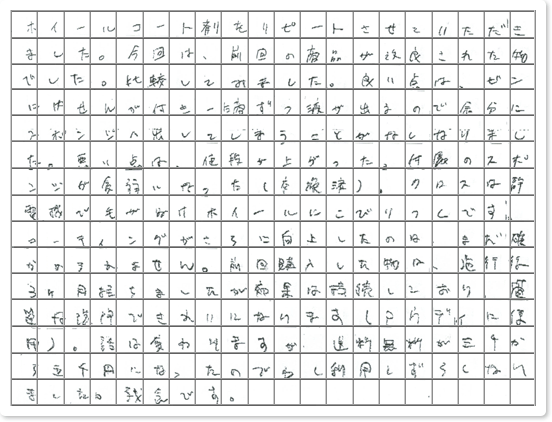 ホイールコート剤をリピートさせていただき
ました。今回は、前回の商品が改良された物
でした。比較してみました。良い点は、ビン
にはせんがはまり一滴ずつ液が出るので余分に
スポンジへ出してしまうことがなくなりまし
た。悪い点は、値段が上がった。付属のスポ
ンジが貧弱になった(交換済)。クロスは静
電気で毛がホイールにこびりつくです。
コーティングがさらに向上したのは、まだ確
かめれません。前回購入した物は、施行後
3ヶ月経ちましたが効果は持続しており、
洗浄できれいになります(ボディに使
用)。話は変わりますが、送料無料が三千か
ら五千円になったので 利用しずらくなり
ました。残念です。